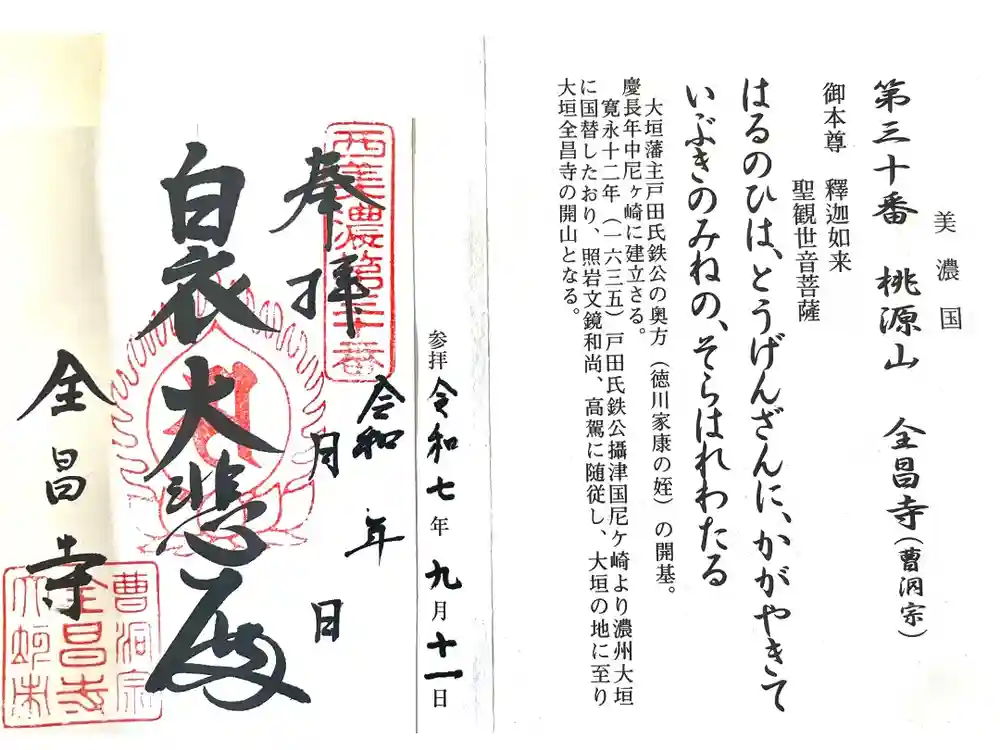 美濃国
第三十番 桃源山 全昌寺（曹洞宗）
御本尊 釋迦如来
聖観世音菩薩
はるのひは、とうげんざんに、かがやきて
いぶきのみねの、そらはれわたる
大垣藩主戸田氏鉄公の奥方（徳川家康の姪）の開基。
慶長年中尼ヶ崎に建立さる。
寛永十二年（一六三五）戸田氏鉄公攝津国尼ヶ崎より濃州大垣
に国替したおり、照岩文鏡和尚、高駕に随従し、大垣の地に至り
大垣全昌寺の開山となる。
参拝 令和七年九月十一日
西美濃第三十番
奉拝
令和 年
月 日
白衣大悲殿
全昌寺
曹洞宗
全昌寺